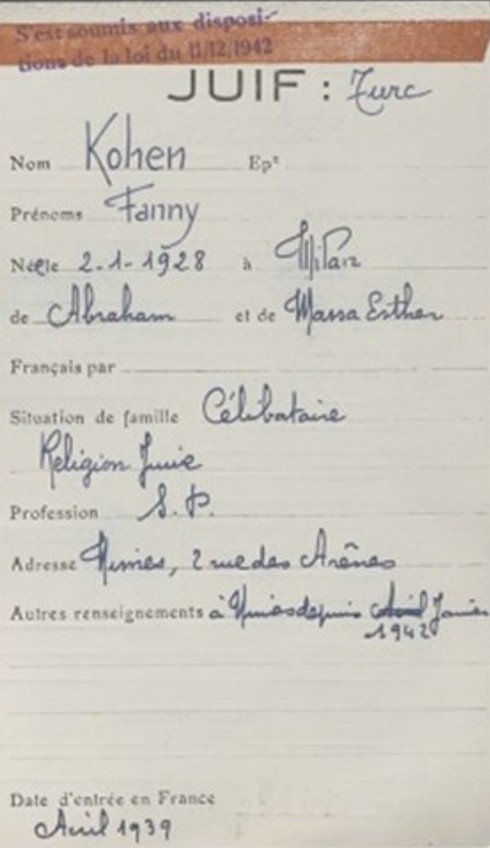 S'est soumis aux disposi-
tions de la loi du 11/12/1942
JUIF : Turc
Nom Kohen Epx
Prénoms Fanny
Née le 2-1-1928 à Milan
de Abraham et de Massa Esther
Français par
Situation de famille Célibataire
Religion Juive
Profession S.P.
Adresse Nimes, 2 rue des Arènes
Autres renseignements à Nimes depuis Avril Janvier
1942
Date d'entrée en France
Avril 1939